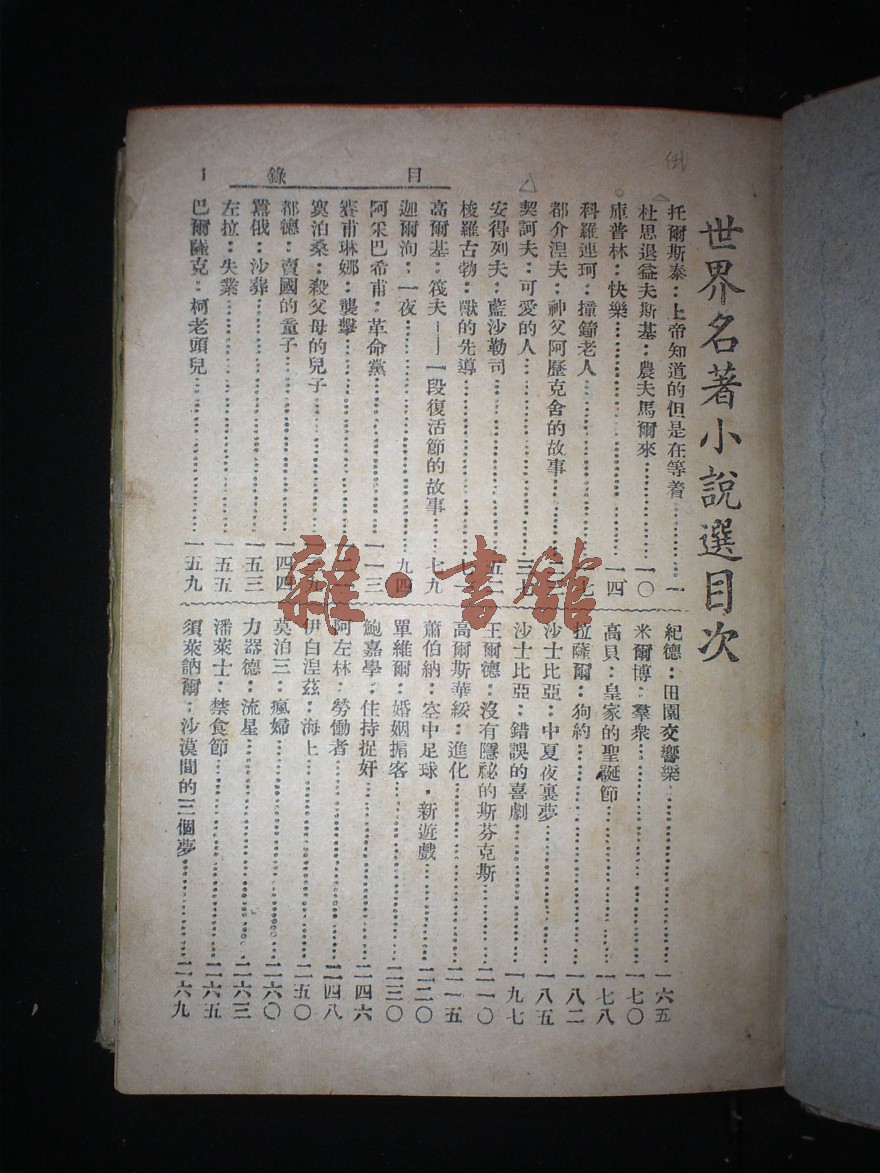 世界名著小說選目次
托爾斯泰：上帝知道的但是在等着………一
杜思退益夫斯基：農夫馬爾來………一〇
庫普林：快樂………一四
科羅連珂：撞鐘老人………
都介涅夫：神父阿歷克舍的故事………
契訶夫：可愛的人………三七
安得列夫：藍沙勒司………五二
梭羅古勃：獸的先導………七
高爾基：筏夫——一段復活節的故事………七九
迦爾洵：一夜………九四
阿采巴希甫：革命黨………一一三
賽甫琳娜：襲擊………
莫泊桑：殺父母的兒子………
都德：賣國的童子………一四四
囂俄：沙葬………一五三
左拉：失業………一五五
巴爾薩克：柯老頭兒………一五九
紀德：田園交響樂………一六五
米爾博：羣衆………一七〇
高貝：皇家的聖誕節………一七八
拉薩爾：狗約………一八二
沙士比亞：中夏夜裏夢………一八五
沙士比亞：錯誤的喜劇………一九七
王爾德：沒有隱祕的斯芬克斯………二一〇
高爾斯華綏：進化………二一五
蕭伯納：空中足球·新遊戲………二二〇
單維爾：婚姻掮客………二三〇
鮑嘉學：住持捉奸………二四六
阿左林：勞働者………二四八
伊白涅茲：海上………二五〇
莫泊三：瘋婦………二六〇
力器德：流星………二六三
潘萊士：禁食節………二六五
須萊訥爾：沙漠間的三個夢………二六九
目錄
1
雜·書館